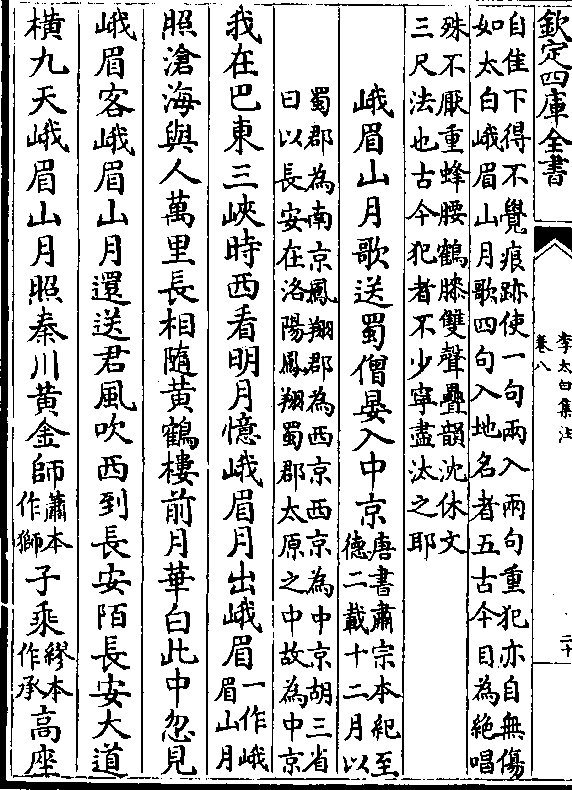 欽定四庫全書
李太白集注
卷八
二十
自佳下得不覺痕跡使一句兩入兩句重犯亦自無傷
如太白峨眉山月歌四句入地名者五古今目為絶唱
殊不厭重蜂腰鶴膝雙聲疊韻沈休文
三尺法也古今犯者不少寧盡汰之耶
峨眉山月歌送蜀僧晏入中京唐書肅宗本紀至德二載十二月以
蜀郡為南京鳳翔郡為西京西京為中京胡三省
曰以長安在洛陽鳳翔蜀郡太原之中故為中京
我在巴東三峽時西看明月憶峨眉月出峨眉一作峨眉山月
照滄海與人萬里長相隨黄鶴樓前月華白此中忽見
峨眉客峨眉山月還送君風吹西到長安陌長安大道
橫九天峨眉山月照秦川黄金師蕭本作獅子乘繆本作承高座